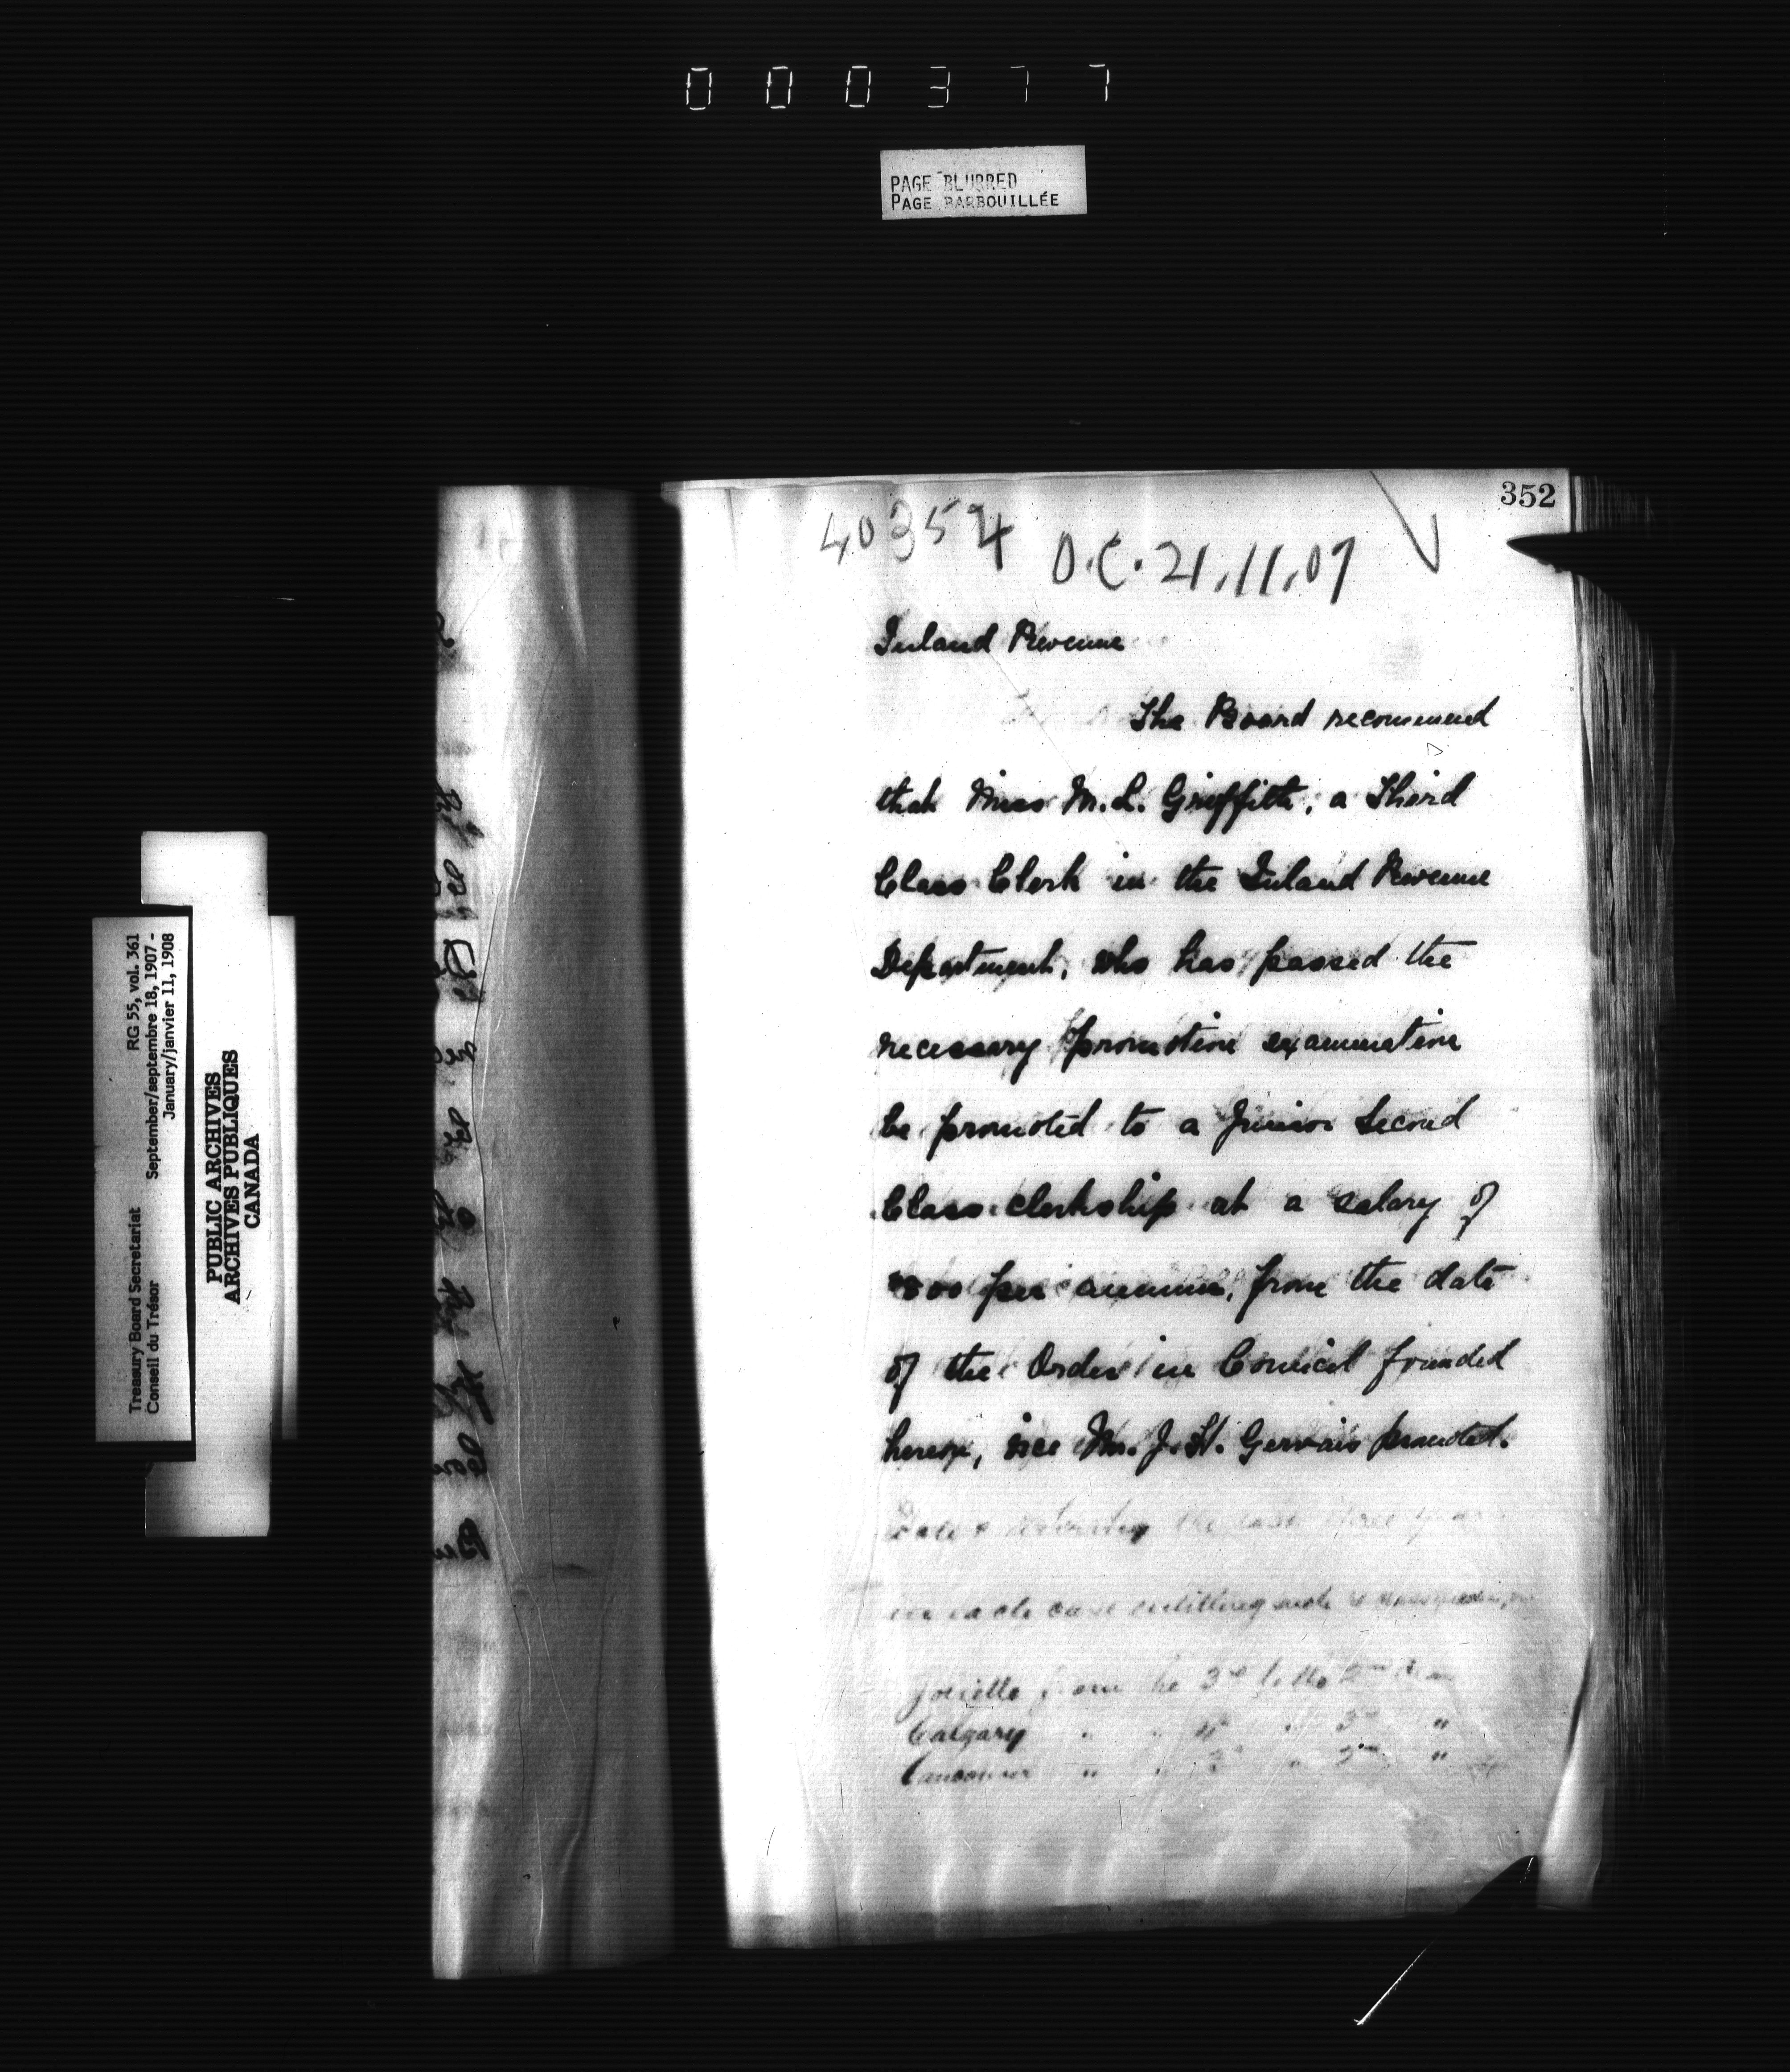 000377
PAGE BLURRED
PAGE BARBOUILLÉE
352
40354 O.C. 21.11.07
Inland Revenue
The Board recommend
that Miss M. L. Griffith, a Third
Class Clerk in the Inland Revenue
Department, who has passed the
necessary promotion examination
be promoted to a Junior Second
Class clerkship at a salary of
per annum, from the date
of the Order in Council founded
hereon, vice Mr. J. H. Gervais promoted.
the last three
in each case entitling such
Joliette from the 3rd to the 2nd
Calgary " " " 3 "
Vancouver " " 3 " 2 "
Treasury Board Secretariat RG 55, vol. 361
Conseil du Trésor September/septembre 18, 1907 -
January/janvier 11, 1908
PUBLIC ARCHIVES
ARCHIVES PUBLIQUES
CANADA